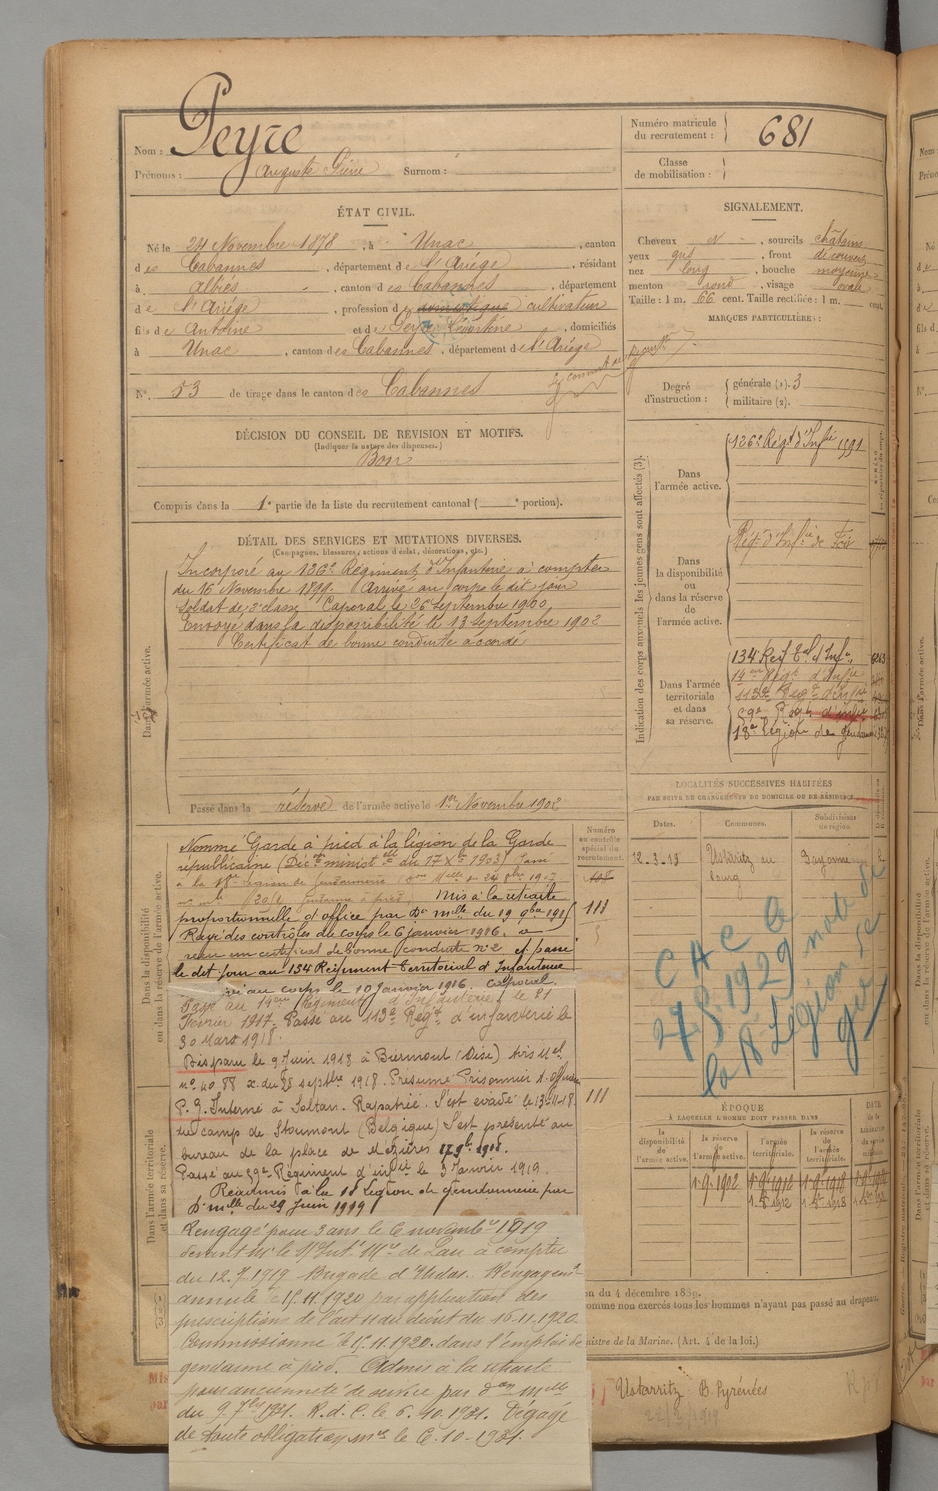 Nom : Peyre
Prénoms : Auguste Pierre Surnom :
Numéro matricule du recrutement : 681
Classe de mobilisation :
ÉTAT CIVIL.
Né le 24 Novembre 1878, à Unac, canton
des Cabannes, département de l'Ariège, résidant
à Albiès, canton des Cabannes, département
de l'Ariège, profession de domestique cultivateur
fils de Antoine et de Peyre, domiciliés
à Unac, canton des Cabannes, département de l'Ariège
N° 53 de tirage dans le canton des Cabannes
SIGNALEMENT.
Cheveux, sourcils châtains
yeux gris, front découvert
nez long, bouche moyenne
menton rond, visage ovale
Taille : 1 m. 66 cent. Taille rectifiée : 1 m. cent.
MARQUES PARTICULIÈRES :
Degré d'instruction : générale (1). 3
militaire (2).
DÉCISION DU CONSEIL DE REVISION ET MOTIFS.
(Indiquer la nature des dispenses.)
Bon
Compris dans la 1e partie de la liste du recrutement cantonal ( e portion).
DÉTAIL DES SERVICES ET MUTATIONS DIVERSES.
(Campagnes, blessures, actions d'éclat, décorations, etc.)
Dans l'armée active.
Incorporé au 126e Régiment d'Infanterie à compter
du 16 Novembre 1899. Arrivé au corps le dit jour
Soldat de 2e classe. Caporal le 26 Septembre 1900
Envoyé dans la disponibilité le 13 Septembre 1902
Certificat de bonne conduite accordé
Passé dans la réserve de l'armée active le 1er Novembre 1902
Indication des corps auxquels les jeunes gens sont affectés (3).
Dans l'armée active.
126e Régt d'Infie 1991
Dans la disponibilité ou dans la réserve de l'armée active.
Régt d'Infie de Foix
Dans l'armée territoriale et dans sa réserve.
134 Regt Tal d'Infie
19 Regt d'Infie
113e Regt d'Infie
59e Regt d'infie
18e Légion de gendarmerie
LOCALITÉS SUCCESSIVES HABITÉES
PAR SUITE DE CHANGEMENTS DE DOMICILE OU DE RÉSIDENCE.
Dates. Communes. Subdivisions de région.
12-3-13 Ustaritz au bourg Bayonne
Dans la disponibilité ou dans la réserve de l'armée active.
Numéro au contrôle spécial du recrutement.
Nommé Garde à pied à la légion de la Garde
républicaine (Déc. minist. du 17 Xbre 1903) Passé
Mis à la retraite
proportionnelle d'office par Don mlle du 19 9bre 1915
Rayé des contrôles du corps le 6 janvier 1916. a
reçu un certificat de bonne conduite n°2 et passé
le dit jour au 134 Régiment Territorial d'Infanterie
au corps le 10 janvier 1916. Caporal.
111
Passé au Régiment d'Infanterie le 21
Février 1917. Passé au 113e Régt d'infanterie le
30 Mars 1918.
Disparu le 9 Juin 1918 à Biermont (Oise) Avis Mel
du 28 septbre 1918. Présumé Prisonnier
P. G. Interné à Soltau. Rapatrié. S'est évadé le 13-11-18
du camp de Stoumont (Belgique) S'est présenté au
bureau de la place de Mézières
111
Passé au 59e Régiment d'infie le 3 Janvier 1919.
Réadmis à la 18 Légion de Gendarmerie par
d. mlle du 29 Juin 1919
Dans l'armée territoriale et dans sa réserve.
Rengagé pour 3 ans le 6 novembre 1919
devant Mr le S/Int. Mre de Pau à compter
du 12.7.1919 Brigade d'Urdos. Rengagemt
annulé le 15.11.1920 par application des
prescriptions de l'art 11 du décret du 16.11.1920.
Commissionné le 15.11.1920. dans l'emploi de
gendarme à pied. Admis à la retraite
pour ancienneté de service par don mlle
du 9. 7bre 1921. R.d.C. le 6.10.1921. Dégagé
de toute obligation mre le 6-10-1921.
C A C le
27.5.1929 note de
la Légion de
ÉPOQUE
À LAQUELLE L'HOMME DOIT PASSER DANS
la disponibilité de l'armée active. la réserve de l'armée active. l'armée territoriale. la réserve de l'armée territoriale. DATE de la
1.9.1902
du 4 décembre 1889.
omme non exercés tous les hommes n'ayant pas passé au drapeau.
nistre de la Marine. (Art. 4 de la loi.)
Ustarritz B. Pyrénées